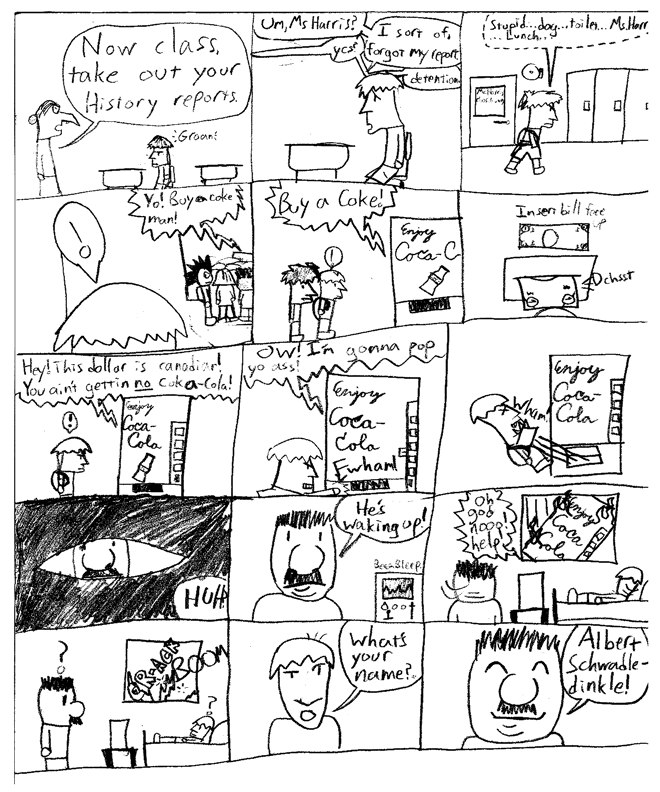 Now class,
take out your
History reports.
Groan!
Um, Ms Harris?
yes?
I sort of,
forgot my report
detention
Stupid...dog...toilet... Ms. Harr
... Lunch...
Yo! Buy a coke
man!
!
Buy a Coke!
!
Enjoy
Coca-C
Insert bill face
up
Dchsst
Hey! This dollar is canadian!
You ain't gettin no Coka-Cola!
!
Enjoy
Coca-
Cola
OW! I'm gonna pop
yo ass!
Enjoy
Coca-
Cola
Fwham!
Wham!
Enjoy
Coca-
Cola
HUH
He's
waking up!
Beep Bleep
Oh?
goo
nooo!
help!
Enjoy
Coca
Cola
?
CRAACK
BOOM
?
What's
your
name?
Albert
Schwadle-
dinkle!